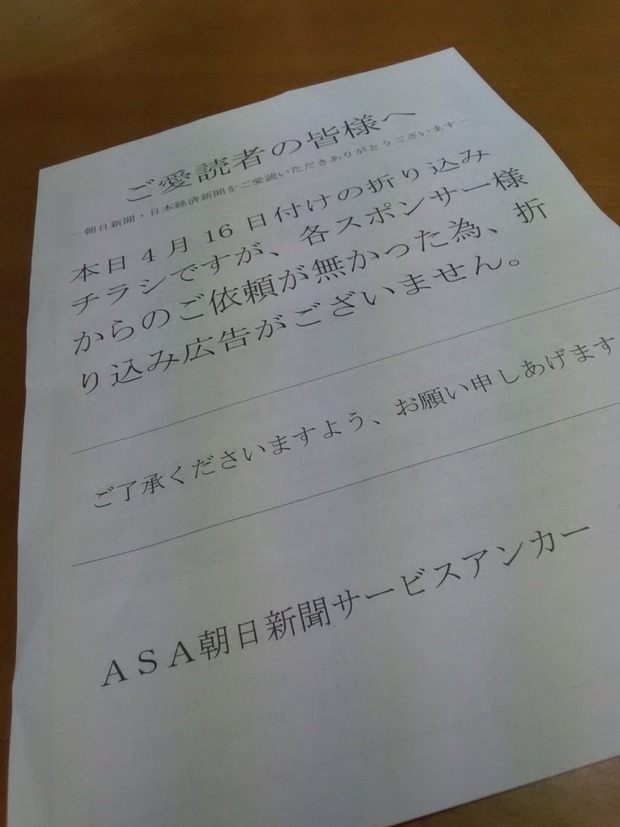 ご愛読者の皆様へ
―朝日新聞・日本経済新聞をご愛読いただきありがとうございます―
本日4月16日付けの折り込み
チラシですが、各スポンサー様
からのご依頼が無かった為、折
り込み広告がございません。
ご了承くださいますよう、お願い申しあげます
ASA朝日新聞サービスアンカー